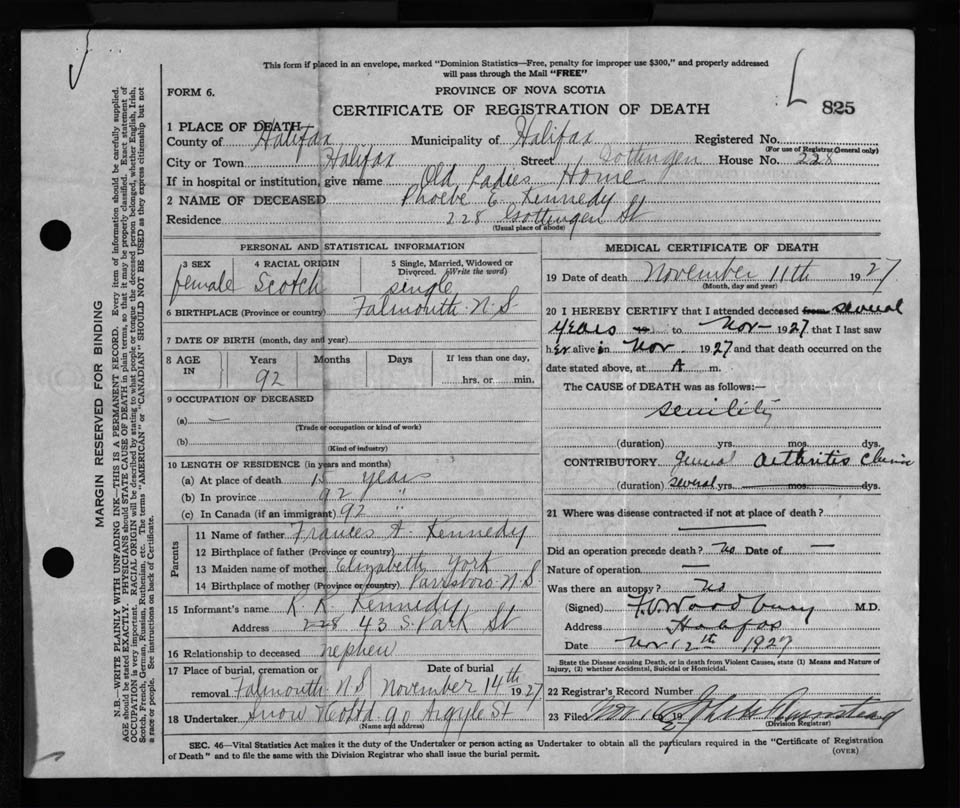 This form if placed in an envelope, marked "Dominion Statistics—Free, penalty for improper use $300," and properly addressed
will pass through the Mail "FREE"
FORM 6.
PROVINCE OF NOVA SCOTIA
CERTIFICATE OF REGISTRATION OF DEATH
L 825
1 PLACE OF DEATH
County of Halifax Municipality of Halifax Registered No.
(For use of Registrar General only)
City or Town Halifax Street Gottingen House No. 228
If in hospital or institution, give name Old Ladies Home
2 NAME OF DECEASED Phoebe E. Kennedy
Residence 228 Gottingen St
(Usual place of abode)
PERSONAL AND STATISTICAL INFORMATION
3 SEX 4 RACIAL ORIGIN 5 Single, Married, Widowed or Divorced. (Write the word)
female Scotch single
6 BIRTHPLACE (Province or country) Falmouth N.S
7 DATE OF BIRTH (month, day and year)
8 AGE IN Years Months Days If less than one day,
92 hrs. or min.
9 OCCUPATION OF DECEASED
(a) —
(Trade or occupation or kind of work)
(b)
(Kind of industry)
10 LENGTH OF RESIDENCE (in years and months)
(a) At place of death 15 years
(b) In province 92 "
(c) In Canada (if an immigrant) 92 "
Parents
11 Name of father Frances A. Kennedy
12 Birthplace of father (Province or country)
13 Maiden name of mother Elizabeth York
14 Birthplace of mother (Province or country) Parrsboro N.S.
15 Informant's name R. R. Kennedy
Address 228 43 S. Park St
16 Relationship to deceased nephew
17 Place of burial, cremation or removal Falmouth N.S
Date of burial November 14th 1927
18 Undertaker Snow & Co Ltd 90 Argyle St
(Name and address)
MEDICAL CERTIFICATE OF DEATH
19 Date of death November 11th 1927
(Month, day and year)
20 I HEREBY CERTIFY that I attended deceased from several
years to Nov— 1927 that I last saw
her alive in Nov. 1927 and that death occurred on the
date stated above, at A m.
The CAUSE of DEATH was as follows:—
senility
(duration) yrs. mos. dys.
CONTRIBUTORY general arthritis
(duration) several yrs. mos. dys.
21 Where was disease contracted if not at place of death?
Did an operation precede death? No Date of —
Nature of operation —
Was there an autopsy? No
(Signed) Woodbury M.D.
Address Halifax
Date Nov 12th 1927
State the Disease causing Death, or in death from Violent Causes, state (1) Means and Nature of
Injury, (2) whether Accidental, Suicidal or Homicidal.
22 Registrar's Record Number
23 Filed Nov. 16 1927
(Division Registrar)
SEC. 46—Vital Statistics Act makes it the duty of the Undertaker or person acting as Undertaker to obtain all the particulars required in the "Certificate of Registration
of Death" and to file the same with the Division Registrar who shall issue the burial permit.
(OVER)
MARGIN RESERVED FOR BINDING
N.B.—WRITE PLAINLY WITH UNFADING INK—THIS IS A PERMANENT RECORD. Every item of information should be carefully supplied.
AGE should be stated EXACTLY. PHYSICIANS should STATE CAUSE OF DEATH in plain terms, so that it may be properly classified. Exact statement of
OCCUPATION is very important. RACIAL ORIGIN will be described by stating to what people or tongue the deceased person belonged, whether English, Irish,
Scotch, French, German, Russian, Ruthenian, etc. The terms "AMERICAN" or "CANADIAN" SHOULD NOT BE USED as they express citizenship but not
a race or people. See instructions on back of Certificate.